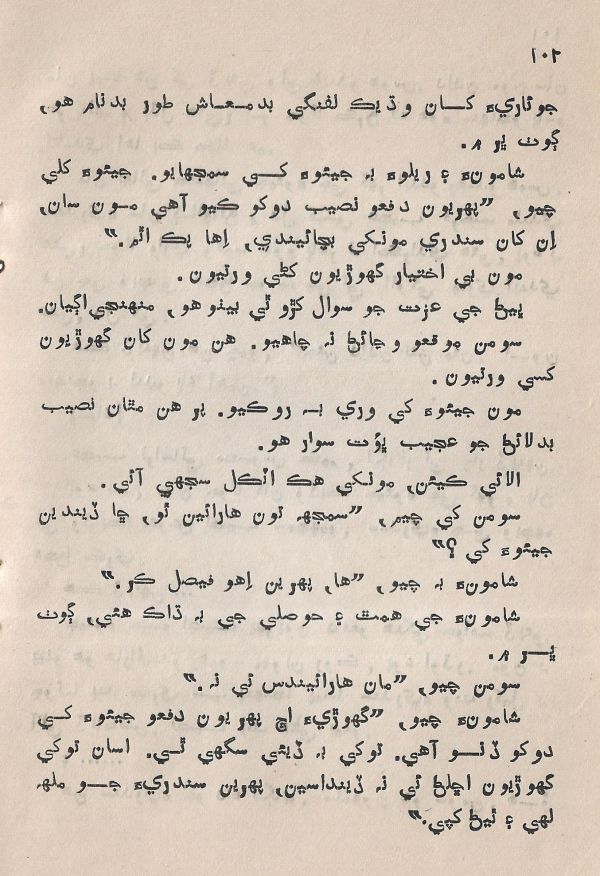 ۱۰۲
جوئاريءَ کان وڌيڪ لفنگي بدمعاش طور بدنام هو،
ڳوٺ ۾.
شامونءَ ۽ ريلوءَ بہ جيٺوءَ کي سمجهايو. جيٺوءَ کلي
چيو، ”پهريون دفعو نصيب دوکو ڪيو آهي مون سان،
اِن کان سندري مونکي بچائيندي، اِها پڪ اٿم.“
مون بي اختيار گهوڙيون کڻي ورتيون.
ڀيڻ جي عزت جو سوال کڙو ٿي بيٺو هو، منهنجي اڳيان.
سومن موقعو وڃائڻ نہ چاهيو. هن مون کان گهوڙيون
کسي ورتيون.
مون جيٺوءَ کي وري بہ روڪيو. پر هن مٿان نصيب
بدلائڻ جو عجيب ڀوت سوار هو.
الائي ڪيئن، مونکي هڪ اٽڪل سجهي آئي.
سومن کي چيم، ”سمجهہ تون هارائين ٿو، ڇا ڏيندين
جيٺوءَ کي؟“
شامونءَ بہ چيو، ”ها، پهرين اِهو فيصل ڪر.“
شامونءَ جي همت ۽ حوصلي جي بہ ڌاڪ هئي، ڳوٺ
۾.
سومن چيو، ”مان هارائيندس ئي نہ.“
شامونءَ چيو، ”گهوڙيءَ اڄ پهريون دفعو جيٺوءَ کي
دوکو ڏنو آهي. توکي بہ ڏيئي سگهي ٿي. اسان توکي
گهوڙيون اڇلڻ ئي نہ ڏينداسين، پهرين سندريءَ جو ملهہ
لهي ۽ ٿيڻ کپي.“